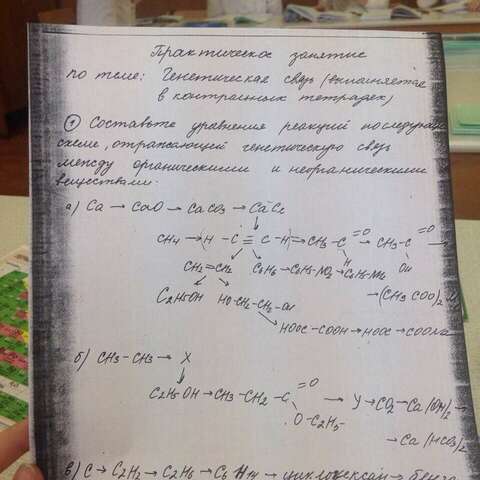 Практическое занятие
по теме: Генетическая связь (выполняется
в контрольных тетрадях)
① Составьте уравнения реакций последующей
схеме, отражающей генетическую связь
между органическими и неорганическими
веществами:
а) Ca → CaO → CaCO3 → CaC2
CH4 → H-C≡C-H → CH3-C=O H → CH3-C=O OH →
CH2=CH2 C6H6 → C6H5-NO2 → C6H5-NH2
→ (CH3COO)2
C2H5OH HO-CH2-CH2-OH
HOOC-COOH → HOOC → COONa
б) CH3-CH3 → X
C2H5OH → CH3-CH2-C=O O-C2H5 → У → CO2 → Ca(OH)2 →
→ Ca(HCO3)2
в) C → C2H2 → C2H6 → C6H14 → циклогексан →